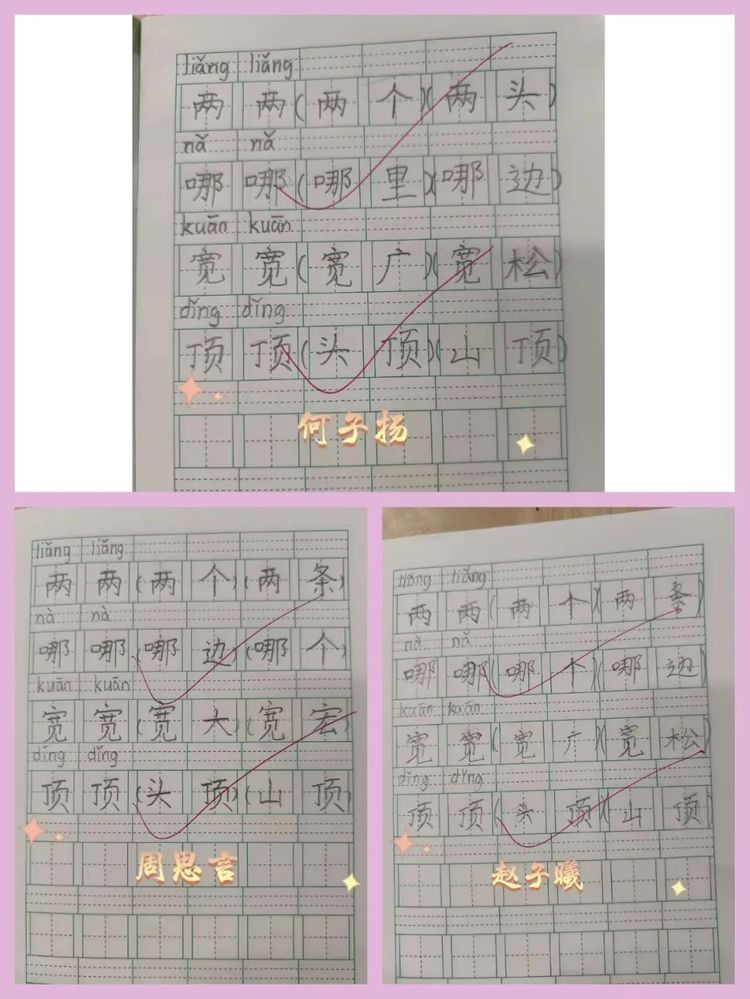 liǎng liǎng
两 两(两 个)(两 头)
nǎ nǎ
哪 哪(哪 里)(哪 边)
kuān kuān
宽 宽(宽 广)(宽 松)
dǐng dǐng
顶 顶(头 顶)(山 顶)
何子扬
liǎng liǎng
两 两(两 个)(两 条)
nà nà
哪 哪(哪 边)(哪 个)
kuān kuān
宽 宽(宽 大)(宽 宏)
dǐng dǐng
顶 顶(头 顶)(山 顶)
周思言
liǎng liǎng
两 两(两 个)(两 条)
nǎ nǎ
哪 哪(哪 个)(哪 边)
kuān kuān
宽 宽(宽 广)(宽 松)
dǐng dǐng
顶 顶(头 顶)(山 顶)
赵子曦